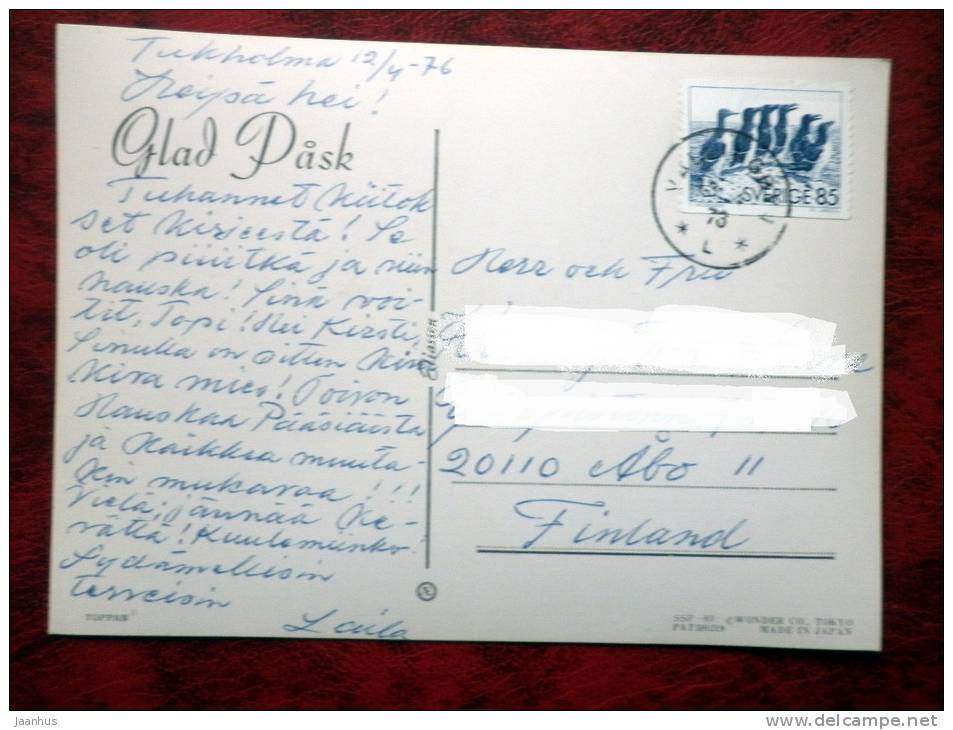 Tukholma 12/4-76
Heipä hei!
Glad Påsk
Tuhannet kiitok
set kirjeestä! Se
oli piiitkä ja niin
hauska! Sinä voi-
tit, Topi! Hei Kirsti,
Sinulla on sitten
kiva mies! Toivon
Hauskaa Pääsiäistä
ja kaikkea muuta-
kin mukavaa!!!
Vielä; jännää ke-
vättä! Kuulemiinko!
Sydämellisin
terveisin
Laila
SVERIGE 85
L
Eliasson
Herr och Fru
20110 Åbo 11
Finland
TOPPAN
SSP-
© WONDER CO., TOKYO
MADE IN JAPAN
Jaanhus
www.delcampe.net